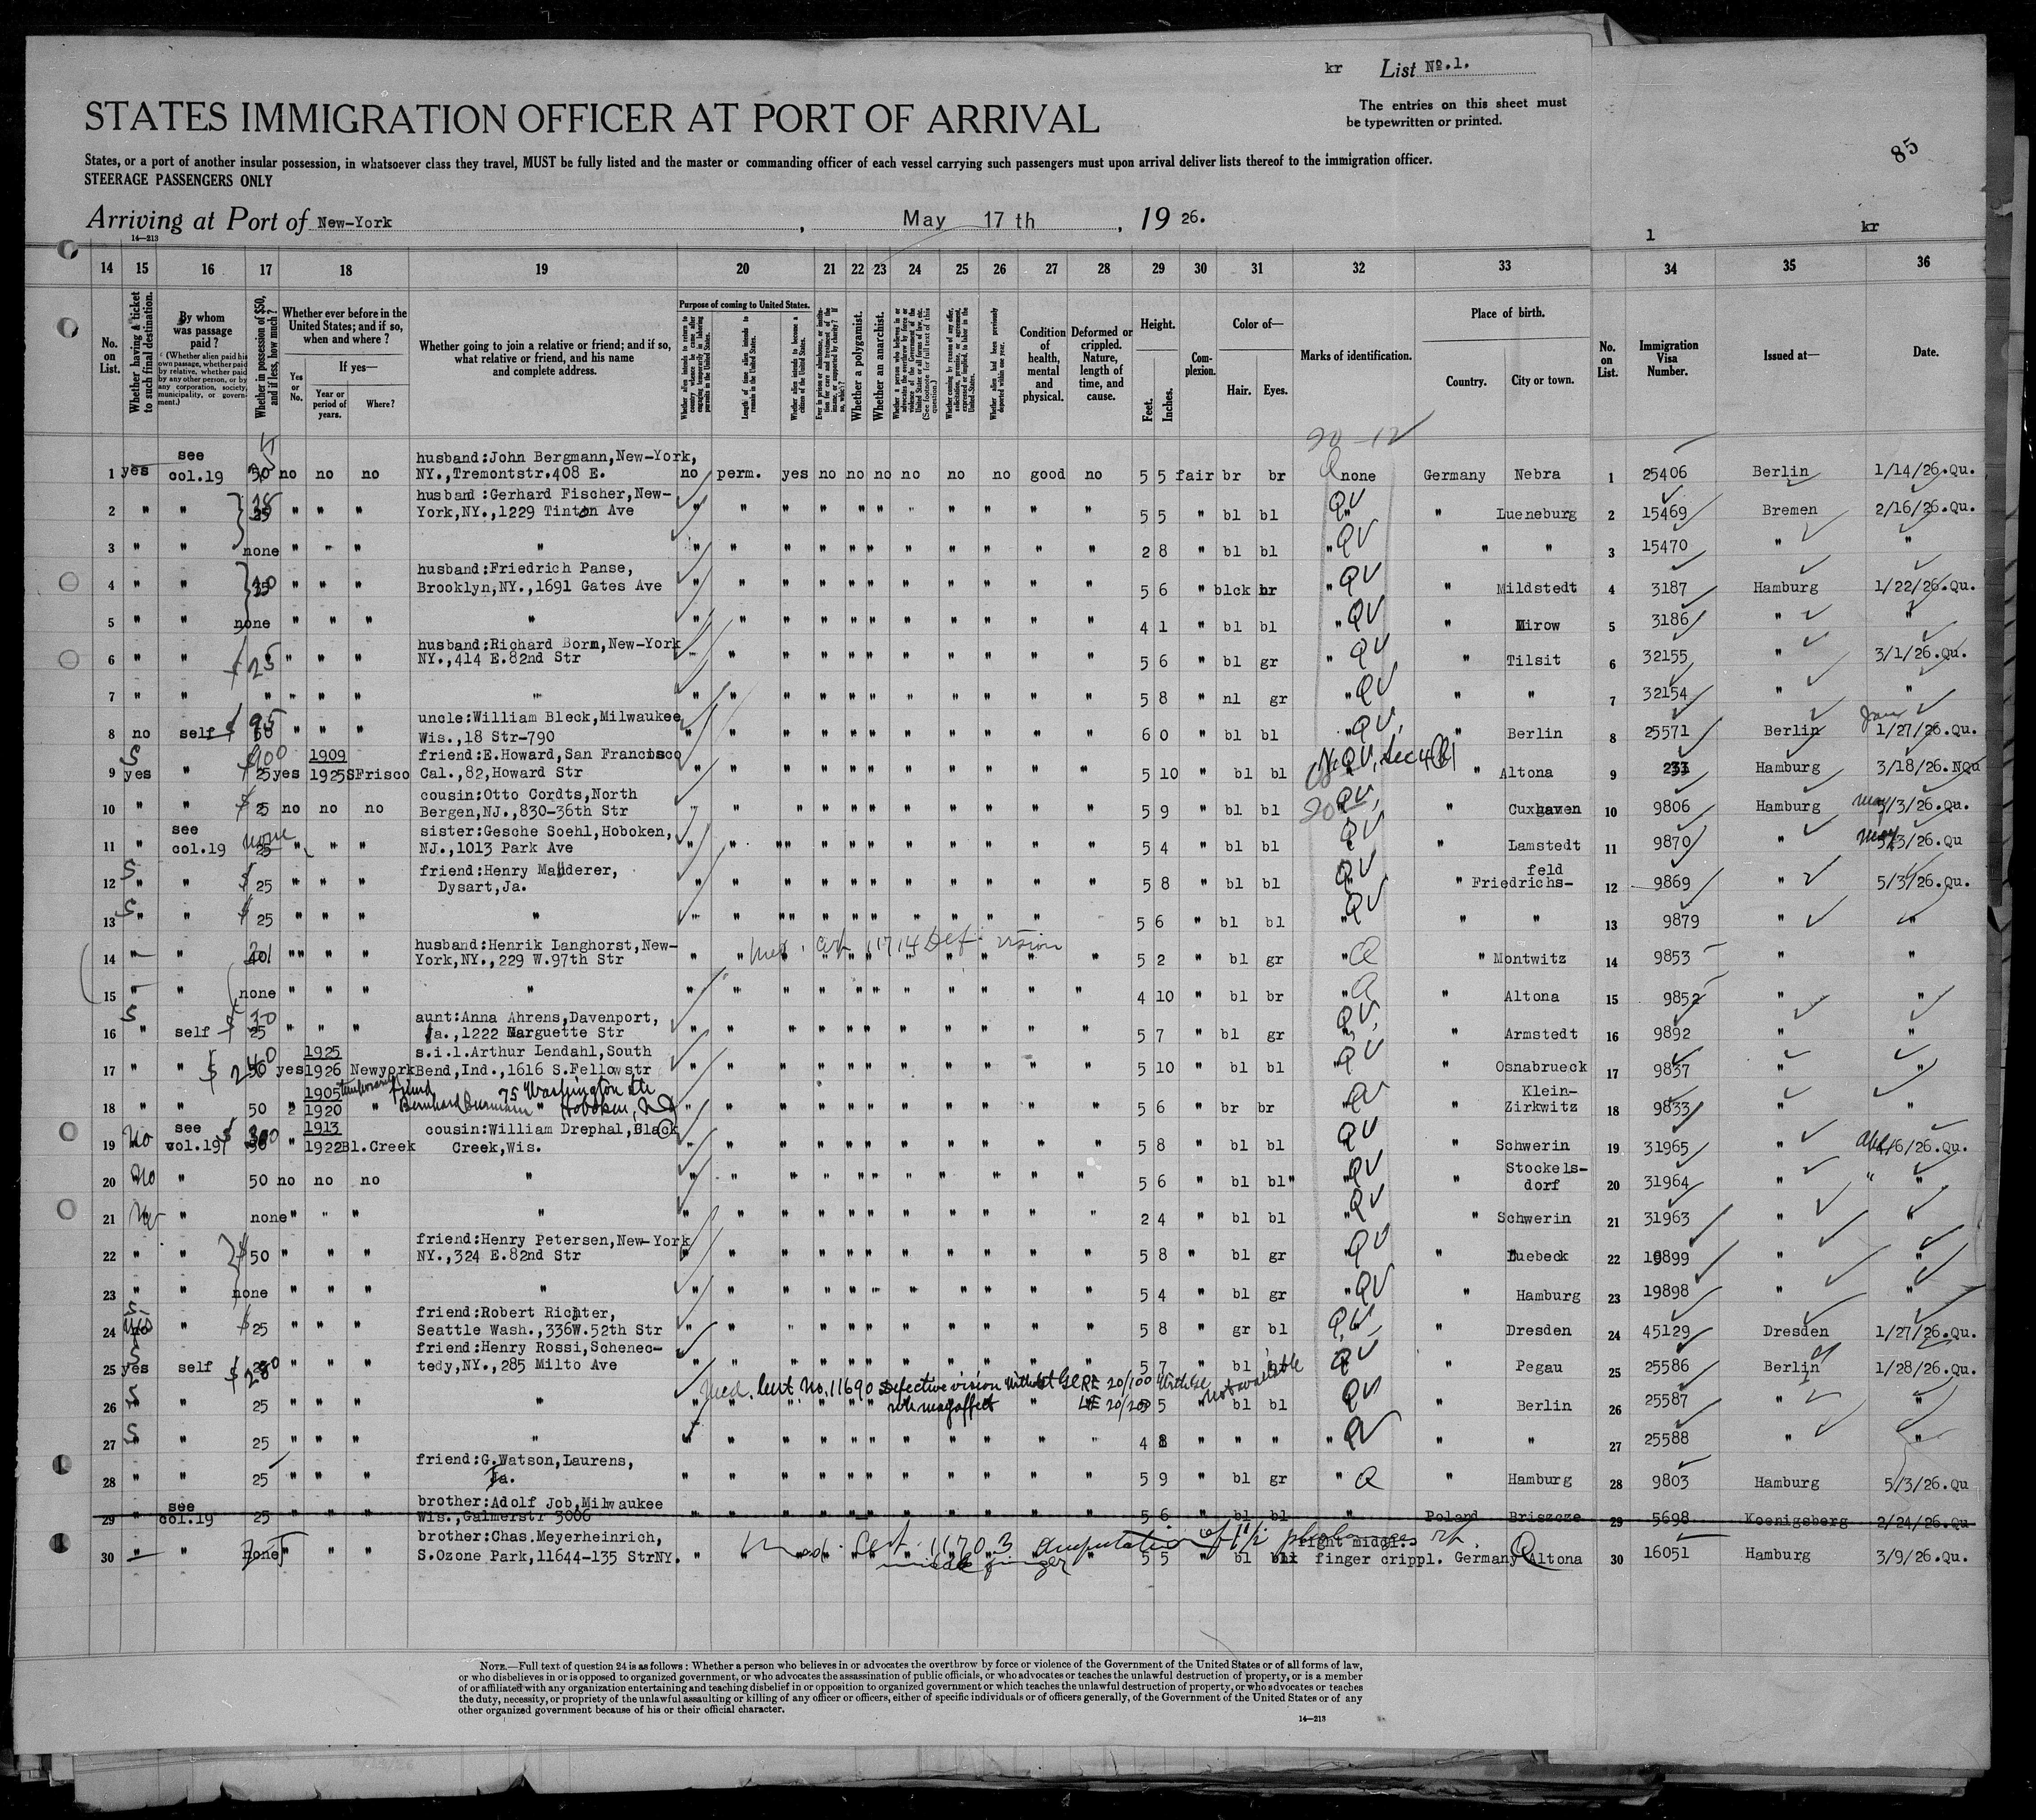 kr List No.1.
The entries on this sheet must
be typewritten or printed.
STATES IMMIGRATION OFFICER AT PORT OF ARRIVAL
85
States, or a port of another insular possession, in whatsoever class they travel, MUST be fully listed and the master or commanding officer of each vessel carrying such passengers must upon arrival deliver lists thereof to the immigration officer.
STEERAGE PASSENGERS ONLY
Arriving at Port of New-York, May 17 th, 19 26.
14—213
1 kr
14 15 16 17 18 19 20 21 22 23 24 25 26 27 28 29 30 31 32 33 34 35 36
No. on List.
Whether having a ticket to such final destination.
By whom was passage paid?
(Whether alien paid his own passage, whether paid by relative, whether paid by any other person, or by any corporation, society, municipality, or government.)
Whether in possession of $50, and if less, how much?
Whether ever before in the United States; and if so, when and where?
Yes or No.
If yes—
Year or period of years.
Where?
Whether going to join a relative or friend; and if so, what relative or friend, and his name and complete address.
Purpose of coming to United States.
Length of time alien intends to remain in the United States.
Whether alien intends to become a citizen of the United States.
Whether a polygamist.
Whether an anarchist.
Condition of health, mental and physical.
Deformed or crippled. Nature, length of time, and cause.
Height.
Feet. Inches.
Complexion.
Color of—
Hair. Eyes.
Marks of identification.
Place of birth.
Country. City or town.
No. on List.
Immigration Visa Number.
Issued at—
Date.
20-12
1 yes see col.19 50 no no no husband:John Bergmann,New-York, NY.,Tremontstr.408 E. no perm. yes no no no no no no good no 5 5 fair br br none Germany Nebra 1 25406 Berlin 1/14/26.Qu.
2 " " 25 " " " husband:Gerhard Fischer,New-York,NY.,1229 Tinton Ave " 5 5 " bl bl QV " Lueneburg 2 15469 Bremen 2/16/26.Qu.
3 " " none " " " " 2 8 " bl bl " QV " " 3 15470 " "
4 " " " " " husband:Friedrich Panse, Brooklyn,NY.,1691 Gates Ave " 5 6 " blck br " QV " Mildstedt 4 3187 Hamburg 1/22/26.Qu.
5 " " none " " " " 4 1 " bl bl " QV " Mirow 5 3186 " "
6 " " 25 " " " husband:Richard Borm,New-York NY.,414 E.82nd Str " 5 6 " bl gr " QV " Tilsit 6 32155 " 3/1/26.Qu.
7 " " " " " " " 5 8 " nl gr " QV " " 7 32154 " "
8 no self $ 95 " " " uncle:William Bleck,Milwaukee Wis.,18 Str-790 " 6 0 " bl bl " QV " Berlin 8 25571 Berlin Jan 1/27/26.Qu.
9 S yes " $900 25 yes 1909 1925 SFrisco friend:E.Howard,San Francisco Cal.,82,Howard Str " 5 10 " bl bl NQV, Sec 4(B) " Altona 9 233 Hamburg 3/18/26.NQu
10 " " $ 25 no no no cousin:Otto Cordts,North Bergen,NJ.,830-36th Str " 5 9 " bl bl QV " Cuxhaven 10 9806 Hamburg May 5/3/26.Qu.
11 " see col.19 none 25 " " " sister:Gesche Soehl,Hoboken, NJ.,1013 Park Ave " 5 4 " bl bl QV " Lamstedt 11 9870 " May 5/3/26.Qu
12 S " " $ 25 " " " friend:Henry Mauderer, Dysart,Ja. " 5 8 " bl bl QV " Friedrichs-feld 12 9869 " 5/3/26.Qu.
13 S " " $ 25 " " " " 5 6 " bl bl " QV " " 13 9879 " "
14 " " " " " husband:Henrik Langhorst,New-York,NY.,229 W.97th Str Med. Cert 11714 Def. vision 5 2 " bl gr " Q " Montwitz 14 9853 " "
15 " " none " " " " 4 10 " bl br " Q " Altona 15 9852 " "
16 S " self $ 30 25 " " " aunt:Anna Ahrens,Davenport, Ja.,1222 Marguette Str " 5 7 " bl gr QV " Armstedt 16 9892 " "
17 " " $ 240 50 yes 1925 1926 Newyork s.i.l.Arthur Lendahl,South Bend,Ind.,1616 S.Fellowstr " 5 10 " bl bl " QV " Osnabrueck 17 9837 " "
18 " " 50 " 1905 1920 " temporarily friend Bernhard Burmann 75 Washington Str Hoboken, NJ " 5 6 " br br " QV " Klein-Zirkwitz 18 9833 " "
19 No see col.19 $ 300 50 " 1913 1922 Bl.Creek cousin:William Drephal,Black Creek,Wis. " 5 8 " bl bl " QV " Schwerin 19 31965 " 4/6/26.Qu.
20 No " 50 no no no " 5 6 " bl bl " QV " Stockels-dorf 20 31964 " "
21 No " none " " " " 2 4 " bl bl " QV " Schwerin 21 31963 " "
22 " " $ 50 " " " friend:Henry Petersen,New-York NY.,324 E.82nd Str " 5 8 " bl gr " QV " Luebeck 22 19899 " "
23 " " none " " " " 5 4 " bl gr " QV " Hamburg 23 19898 " "
24 no " $ 25 " " " friend:Robert Richter, Seattle Wash.,336W.52th Str " 5 8 " gr bl QV " Dresden 24 45129 Dresden 1/27/26.Qu.
25 S yes self $ 280 " " " friend:Henry Rossi,Schenec-tedy,NY.,285 Milto Ave " 5 7 " bl QV " Pegau 25 25586 Berlin 1/28/26.Qu.
26 S " " 25 " " " " Med. Cert. No. 11690 Defective vision without Gl RE 20/100 LE 20/200 with Gl not available wh may affect 5 5 " bl bl QV " Berlin 26 25587 " "
27 S " " 25 " " " " 4 8 " " " " QV " " 27 25588 " "
28 " " 25 " " " friend:G.Watson,Laurens, Ja. " 5 9 " bl gr " Q " Hamburg 28 9803 Hamburg 5/3/26.Qu
29 " see col.19 25 " " " brother:Adolf Job,Milwaukee Wis.,Galmerstr 3006 " 5 6 " bl bl " Poland Briszcze 29 5698 Koenigsberg 2/24/26.Qu
30 " " none " " " brother:Chas.Meyerheinrich, S.Ozone Park,11644-135 StrNY. Med. Cert. 11703 amputation of 1 1/2 phalanges rt. middle finger 5 5 " bl bl right middl. finger crippl. Germany Q Altona 30 16051 Hamburg 3/9/26.Qu.
NOTE.—Full text of question 24 is as follows: Whether a person who believes in or advocates the overthrow by force or violence of the Government of the United States or of all forms of law,
or who disbelieves in or is opposed to organized government, or who advocates the assassination of public officials, or who advocates or teaches the unlawful destruction of property, or is a member
of or affiliated with any organization entertaining and teaching disbelief in or opposition to organized government or which teaches the unlawful destruction of property, or who advocates or teaches
the duty, necessity, or propriety of the unlawful assaulting or killing of any officer or officers, either of specific individuals or of officers generally, of the Government of the United States or of any
other organized government because of his or their official character.
14—213